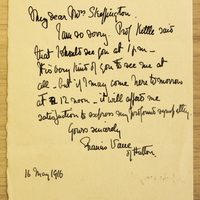 My dear Mrs Skeffington.
I am so sorry. Prof Kettle said
that I should see you at 1 pm —
It is very kind of you to see me at
all — but if I may come here tomorrow
at 12 noon — it will afford me
satisfaction to express my profound sympathy.
Yours sincerely
Francis Vane
of Hutton.
16 May 1916